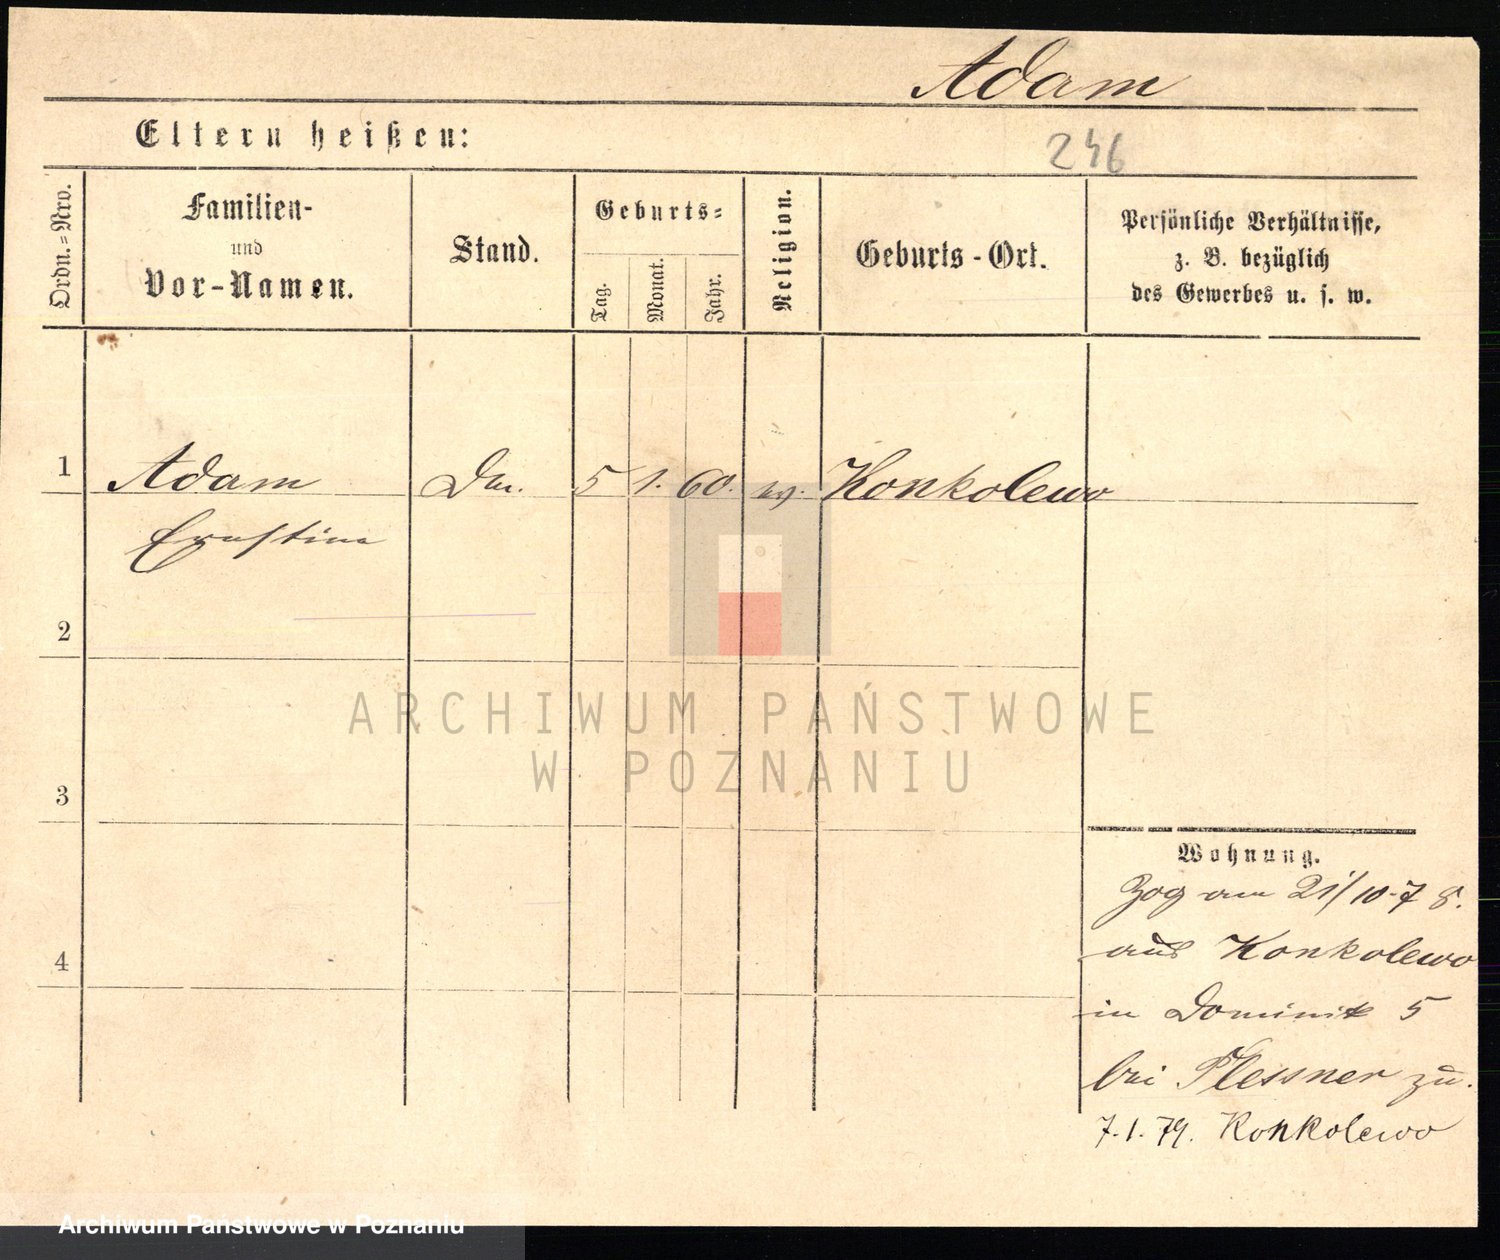 Adam
Eltern heißen:
246
Ordn.=Nro.
Familien-
und
Vor-Namen.
Stand.
Geburts=
Tag.
Monat.
Jahr.
Religion.
Geburts-Ort.
Persönliche Verhältnisse,
z. B. bezüglich
des Gewerbes u. s. w.
1
Adam
5 1. 60.
Konkolewo
Ernstine
2
3
4
Wohnung.
Zog am 21/10.78.
aus Konkolewo
in Dominik 5
bei Plessner zu.
7.1.79. Konkolewo
ARCHIWUM PAŃSTWOWE
W POZNANIU
Archiwum Państwowe w Poznaniu